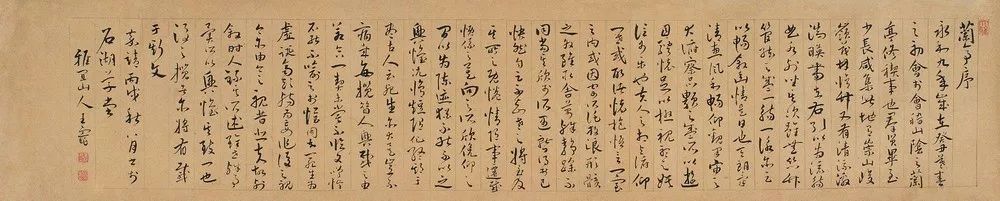 蘭亭序
永和九年歲在癸丑暮春
之初會于會稽山陰之蘭
亭脩稧事也羣賢畢至
少長咸集此地有崇山峻
嶺茂林脩竹又有清流激
湍暎帶左右引以為流觴
曲水列坐其次雖無絲竹
管絃之盛一觴一詠亦足
以暢叙幽情是日也天朗氣
清惠風和暢仰觀宇宙之
大俯察品類之盛所以遊
目騁懷足以極視聽之娛
信可樂也夫人之相與俯仰
一世或取諸懷抱悟言一室
之內或因寄所託放浪形骸
之外雖趣舍萬殊靜躁不
同當其欣於所遇暫得於己
快然自足不知老之將至及
其所之既惓情隨事遷感
慨係之矣向之所欣俛仰之
間以為陳迹猶不能不以之
興懷況脩短隨化終期於
盡古人云死生亦大矣豈不
痛哉每攬昔人興感之由
若合一契未嘗不臨文嗟悼
不能不喻之於懷固知一死生為
虛誕齊彭殤為妄作後之視
今亦由今之視昔悲夫故列
叙時人錄其所述雖世殊事
異所以興懷其致一也
後之攬者亦將有感
于斯文
嘉靖丙戌秋八月書
石湖草堂
雅宜山人王寵